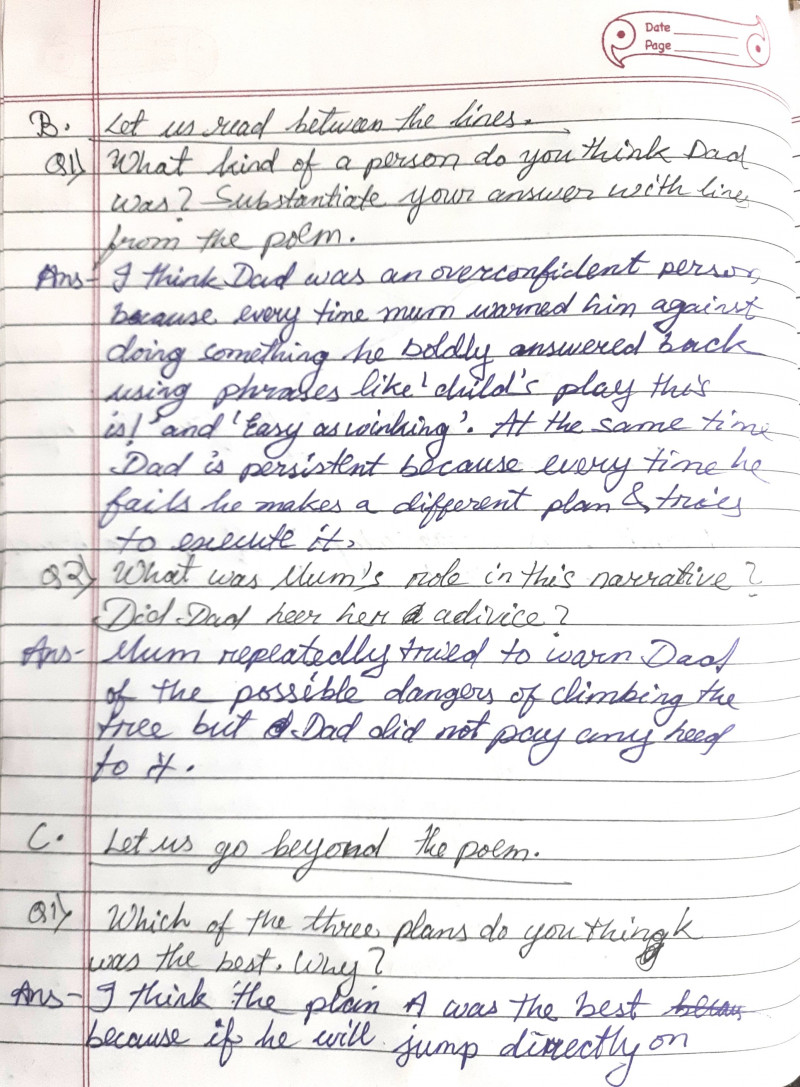 Date
Page
B. Let us read between the lines.
Q1) What kind of a person do you think Dad
was? Substantiate your answer with line
from the poem.
Ans- I think Dad was an overconfident person,
because every time mum warned him against
doing something he boldly answered back
using phrases like 'child's play this
is!' and 'Easy as winking'. At the same time
Dad is persistent because every time he
fails he makes a different plan & tries
to execute it.
Q2) What was Mum's role in this narrative?
Did Dad heer her adivice?
Ans- Mum repeatedly tried to warn Dad
of the possible dangers of climbing the
tree but Dad did not pay any heed
to it.
C. Let us go beyond the poem.
Q1) Which of the three plans do you think
was the best. Why?
Ans- I think the plain A was the best becaus
because if he will jump directly on